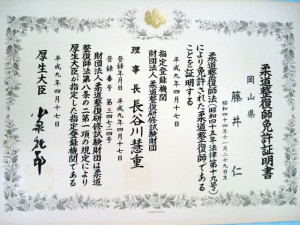 柔道整復師免許証明書
岡山県
藤井 仁
昭和四十五年十一月二十九日生
柔道整復師法(昭和四十五年法律第十九号)
により免許された柔道整復師である
ことを証明する
平成九年四月十七日
指定登録機関
財団法人柔道整復研修試験財団
理事長 長谷川慧重
登録年月日 平成九年四月十七日
登録番号 第三四二四号
財団法人柔道整復研修試験財団は柔道
整復師法第八条の二第一項の規定により
厚生大臣が指定した指定登録機関である
平成九年四月十七日
厚生大臣 小泉純一郎